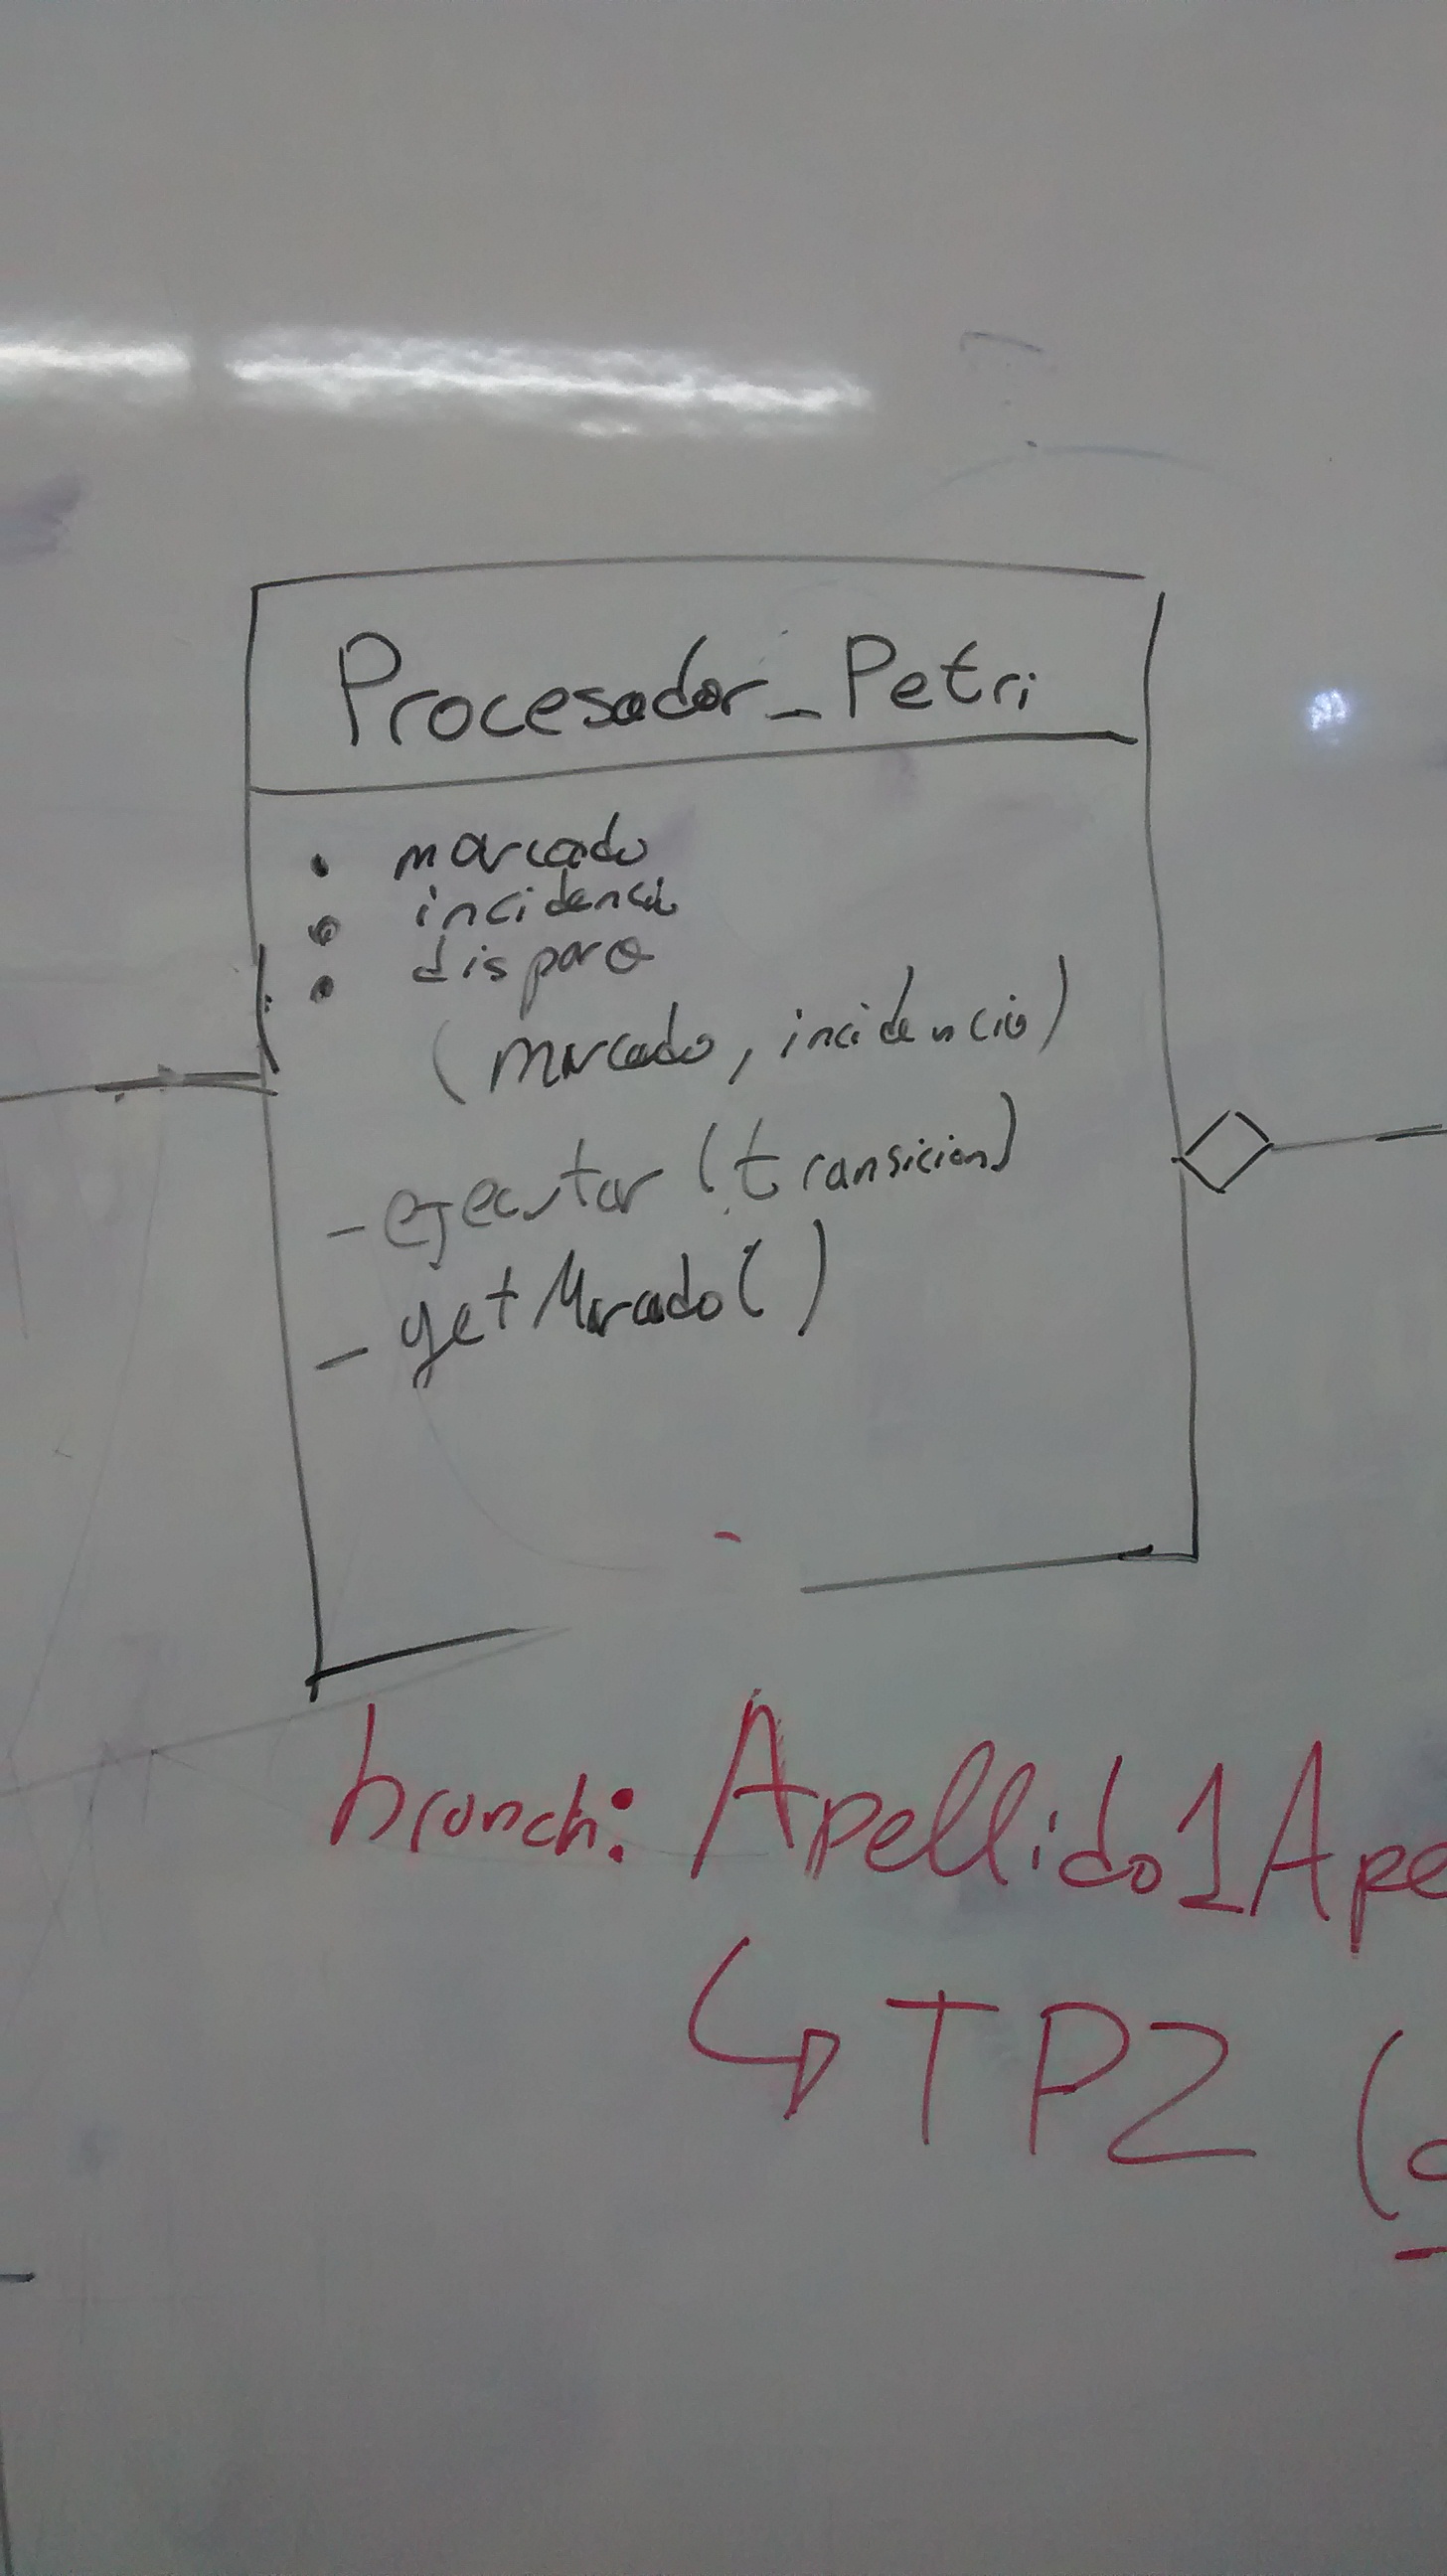 Procesador_Petri
• marcado
• incidencia
• disparo
(marcado, incidencia)
- ejecutar (transicion)
- getMarcado()
branch: Apellido1Ape
↳ TP2 (